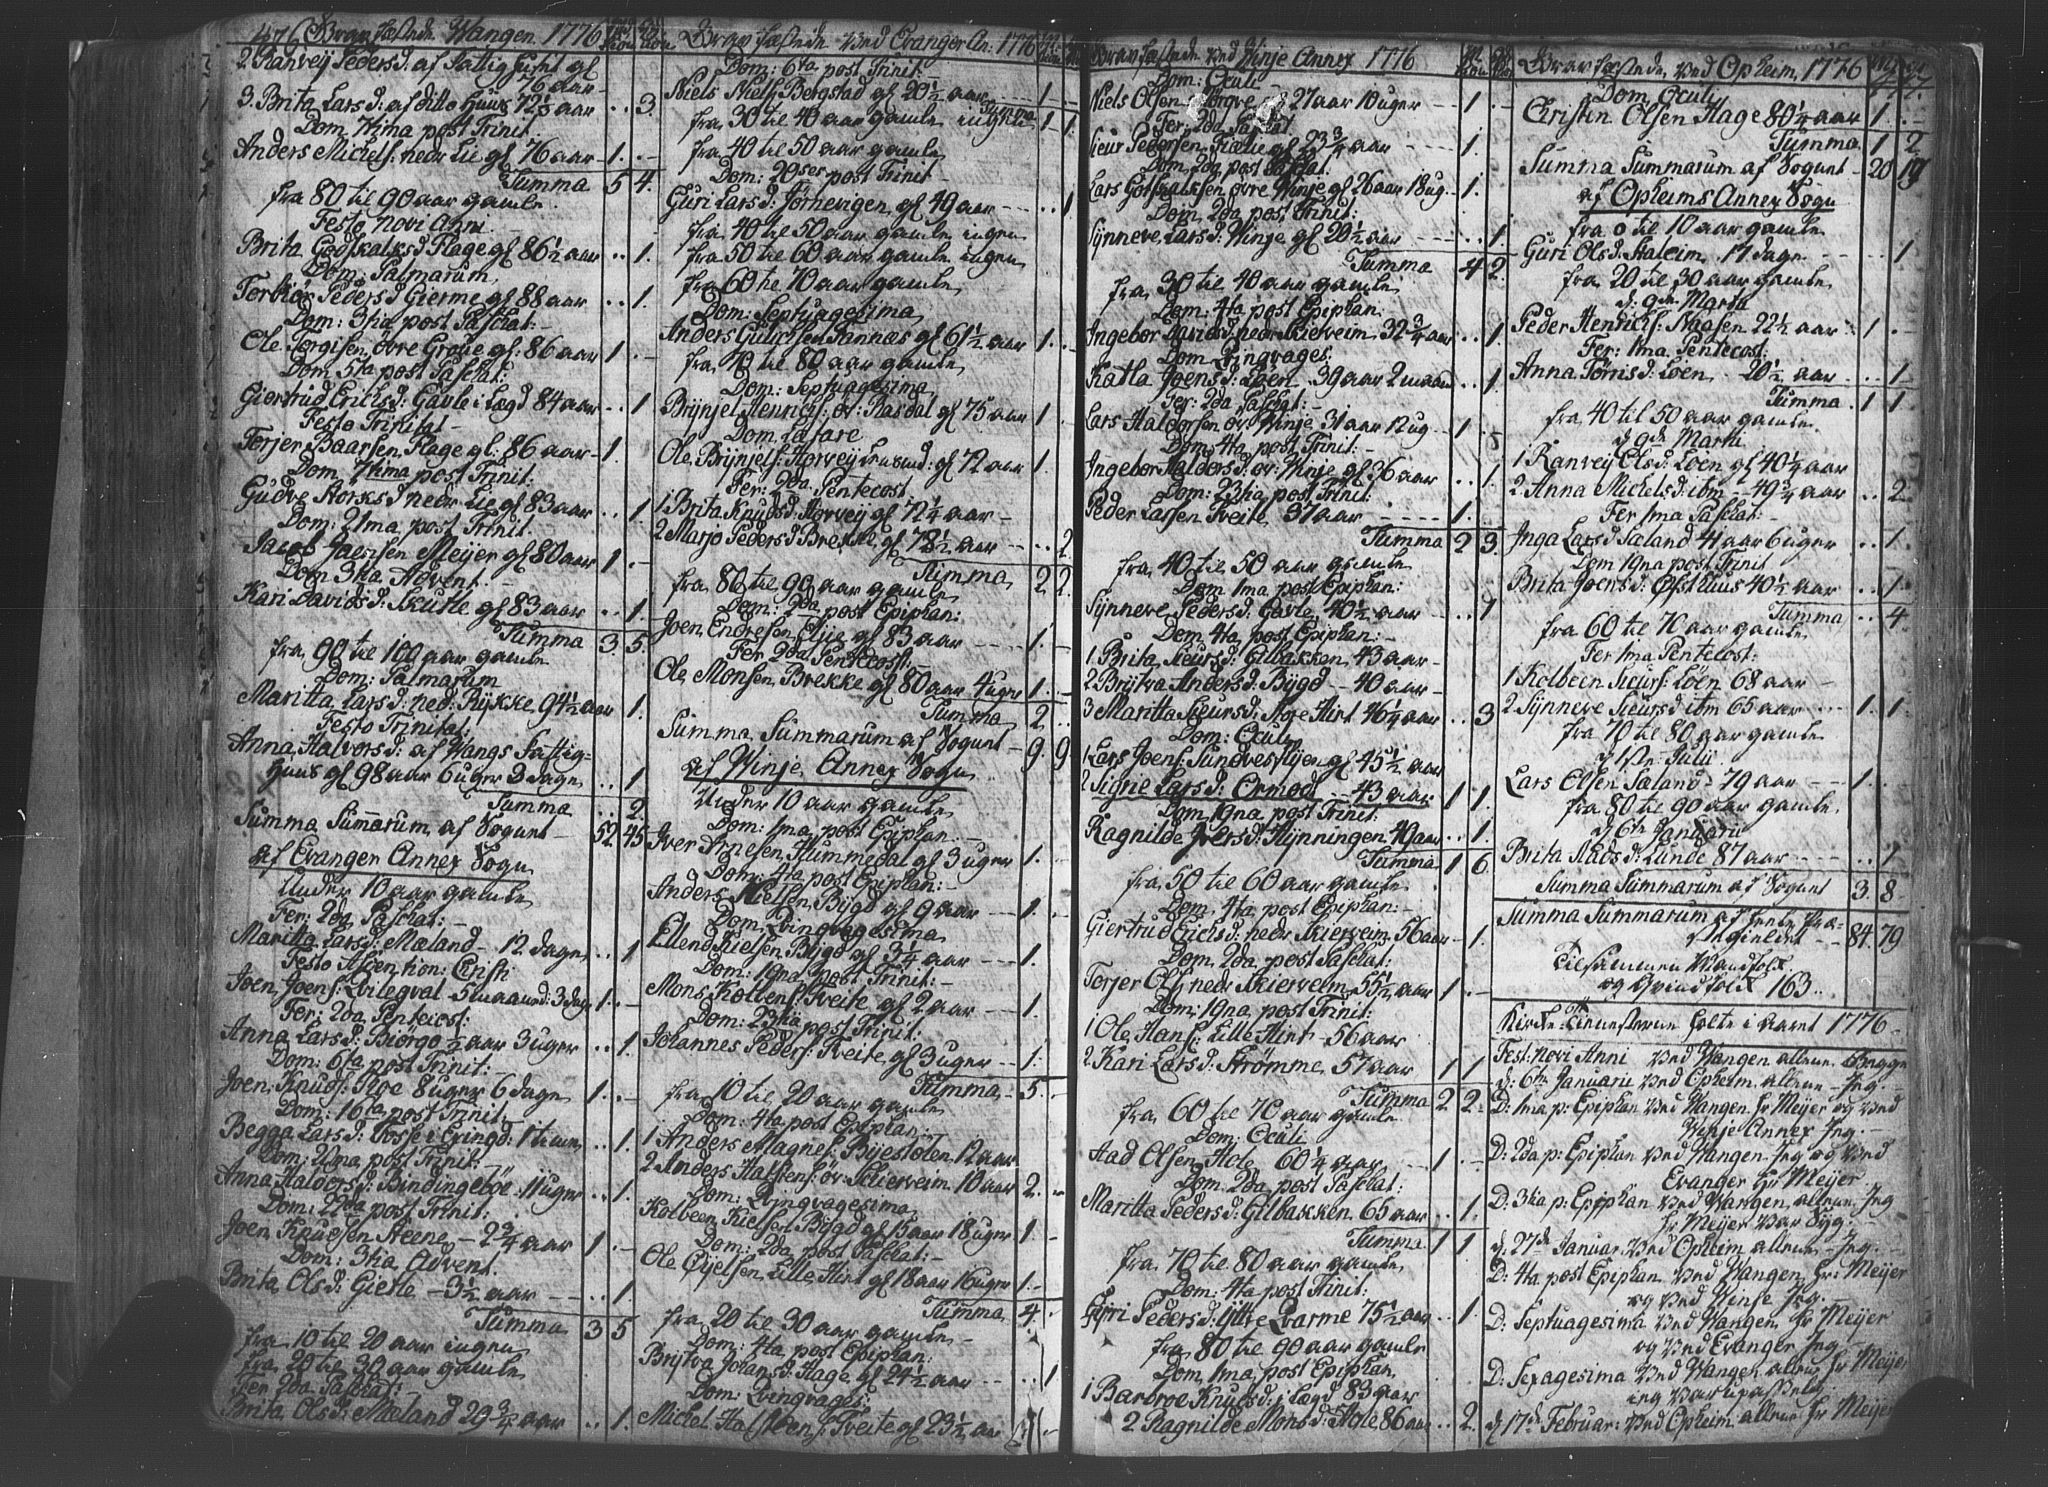 476 Gravfæstede Wangen 1776
2 Ranvey Peders d: af Fattighuset gl
76 aar
3. Brita Lars d: af ditto Huus 72½ aar .. 3.
Dom 7tima post Trinit.
Anders Michels: nedr Lie gl 76 aar 1. ..
Summa 5 4.
fra 80 til 90 aar gamle
Festo Novi Anni
Brita Godskalks d Flage gl 86½ aar .. 1.
Dom: Palmarum
Torbiør Peders d Gierme gl 88 aar .. 1.
Dom: 3tia post Paschat:
Ole Torgisen øvre Grove gl: 86 aar 1. ..
Dom 5ta post Paschat:
Giertrud Erichs d: Gavle i Lægd 84 aar .. 1
Festo Trinitat
Torjer Baarsen Flage gl: 86 aar 1.
Dom 7tima post Trinit:
Gudve Storks d nedr Lie gl 83 aar .. 1.
Dom: 21ma post Trinit.
Jacob Jaensen Meijer gl 80 aar 1. ..
Dom 3tia Advent.
Kari Davids d: Skutle gl 83 aar .. 1.
Summa 3. 5.
fra 90 til 100 aar gamle
Dom: Palmarum
Maritta Lars d: ned: Rykke 94½ aar 1.
Festo Trinitat:
Anna Halvors d: af Wangs Fattig-
Huus gl 98 aar 6 uger 3 dage .. 1
Summa .. 2.
Summa Sumarum af Sognet 52. 45.
af Evanger Annex Sogn
Under 10 aar gamle
Fer: 2da Paschat:
Maritta Lars d: Mæland 12 dage .. 1
Festo Ascention: Christi
Joen Joens: Qvilegval 5 maaned: 3 dag 1. ..
Fer: 2da Pentecost:
Anna Lars d: Biørgo ½ aar 3 uger .. 1.
Dom: 6ta post Trinit:
Joen Knuds: Roe 8 uger 6 dage 1. ..
Dom: 16ta post Trinit:
Begga Lars d: Fosse i Exingd: 1 time .. 1.
Dom: 21ma post Trinit:
Anna Haldors d: Bindingebøe 11 uger .. 1.
Dom: 22da post Trinit:
Joen Knudsen Steene 2¾ aar 1. ..
Dom: 3tia Advent.
Brita Ols d: Gierle 3½ aar .. 1
Summa 3 5
fra 10 til 20 aar ingen
fra 20 til 30 aar gamle
Fer 2da Paschat:
Brita Ols d: Mæland 29¾ aar .. 1.
Gravfæstede ved Evanger An: 1776
Dom: 6ta post Trinit:
Niels Niels: Bergstad gl 20½ aar 1 ..
Summa 1 1.
fra 30 til 40 aar gamle ingen
fra 40 til 50 aar gamle
Dom: 20ses post Trinit
Guri Lars d: Tørhevigen gl 49 aar .. 1
fra 40 til 50 aar gamle ingen
fra 50 til 60 aar gamle ingen
fra 60 til 70 aar gamle
Dom: Septuagesima
Anders Gulichsen Fannæs gl 61½ aar 1. ..
fra 70 til 80 aar gamle
Dom: Septuagesima
Brynjel Henrichs: øv: Rasdal gl 75 aar 1.
Dom Lætare
Ole Brynjels: Horvey Lensmd: gl 72 aar 1.
Fer: 2da Pentecost
1 Brita Knuds d: Horvey gl 72¼ aar
2 Marjo Peders d Brekke gl 78½ aar .. 2
Summa 2 2.
fra 80 til 90 aar gamle
Dom: 2da post Epiphan:
Joen Endresen Elje gl 83 aar 1.
Fer 2da Pentecost:
Ole Monsen Brekke gl 80 aar 4 uger 1. ..
Summa 2. ..
Summa Summarum af Sognet 9. 9
af Winje Annex Sogn
Under 10 aar gamle
Dom: 1ma post Epiphan:
Iver Arnesen Hummedal gl 3 uger 1.
Dom: 4ta post Epiphan:
Anders Kielsen Bygd gl 9 aar 1.
Dom Qvingvagesima
Ellend Kielsen Bygd gl 3¼ aar 1.
Dom: 19na post Trinit:
Mons Kolbens: Tveite gl 2 aar 1
Dom: 23tia post Trinit:
Johannes Peders: Tveite gl 3 uger 1.
Summa 5. ..
fra 10 til 20 aar gamle
Dom: 4ta post Epiphan:
1 Anders Magnes: Bijestølen 12 aar
2 Anders Halstens: øv: Skierveim 10 aar 2. ..
Dom: Qvingvagesima
Kolbeen Kielsen Bygd gl 15 aar 18 uger 1
Dom: 2da post Paschat:
Ole Eyelsen Lille Flint gl 18 aar 16 uger 1. ..
Summa 4 ..
fra 20 til 30 aar gamle
Dom: 4ta post Epiphan:
Brytva Johans d: Hage gl 24½ aar .. 1
Dom: Qvingvages:
Michel Halsteens: Tveite gl 23½ aar
Gravfæstede ved Winje Annex 1776
Dom: Oculi
Niels Olsen Norgve 27 aar 10 uger 1. ..
Fer: 2da Paschat
Siur Pedersen Fiælie gl 23¾ aar 1.
Dom 2da post Paschat:
Lars Gotskalksen øvre Winje gl 26 aar 18 ug. 1.
Dom. 2da post Trinit:
Synneve Lars d: Winje gl 20½ aar .. 1.
Summa 4 2.
fra 30 til 40 aar gamle
Dom: 4ta post Epiphan:
Ingebor Lars d: nedr Skierveim 32¾ aar .. 1.
Dom Qvingvages:
Katla Joens d: Løen 39 aar 2 maan .. 1.
Fer: 2da Paschat:
Lars Haldorsen øv: Winje 31 aar 12 ug 1.
Dom 4ta post Trinit:
Ingebor Haldors d: øv: Winje gl 36 aar .. 1.
Dom: 23tia post Trinit:
Peder Larsen Tveite 37 aar 1.
Summa 2 3.
fra 40 til 50 aar gamle
Dom 1ma post Epiphan:
Synneve Peders d: Gavle 40½ aar .. 1
Dom 4ta post Epiphan:
1 Brita Siurs d: Gilbakken 43 aar
2 Brytva Anders d: Bygd 40 aar
3 Maritta Siurs d: Store Flint 46¼ aar .. 3
Dom: Oculi
1 Lars Joens: Sundvesflyen gl 45½ aar
2 Signe Lars d: Ormod 43 aar 1 1.
Dom 19na post Trinit:
Ragnilde Ivers d: Flynningen 49 aar .. 1.
Summa 1 6.
fra 50 til 60 aar gamle
Dom. 4ta post Epiphan:
Giertrud Erichs d: nedr Skierveim 56 aar .. 1.
Dom 2da post Paschat:
Torjer Ols: nedr Skierveim 55½ aar 1. ..
Dom: 19na post Trinit:
1 Ole Hans: Lille Flint 56 aar
2 Kari Lars d: Strømme 57 aar 1 1
Summa 2 2.
fra 60 til 70 aar gamle
Dom: Oculi
Aad Olsen Hole 60¼ aar 1 ..
Dom: 2da post Paschat:
Maritta Peders d: Gilbakken 65 aar .. 1.
Summa 1 1
fra 70 til 80 aar gamle
Dom: 4ta post Trinit:
Gyri Peders d: Yttre Qvarme 75½ aar .. 1.
fra 80 til 90 aar gamle
Dom, 1ma post Epiphan
1 Barbroe Knuds d: i Lægd 83 aar
2 Ragnilde Mons d: Hole 86 aar .. 2.
Gravfæstede ved Opheim 1776 477.
Dom Oculi
Christen Olsen Hage 80¼ aar 1 ..
Summa 1 2
Summa Summarum af Sognet 20 19
af Opheims Annex Sogn
fra 0 til 10 aar gamle
Guri Ols d: Staleim 17 dage 1
fra 20 til 30 aar gamle
d: 9de Martii
Peder Henrichs: Naasen 22½ aar 1 ..
Fer: 1ma Pentecost:
Anna Tørris d: Løen 20½ aar .. 1
Summa 1 1.
fra 40 til 50 aar gamle
d 9de Martii
1 Ranvey Ols d: Løen gl 40¼ aar
2 Anna Michels d ibm 49¾ aar .. 2
Fer 1ma Paschat:
Inga Lars d Sæland 41 aar 6 uger .. 1.
Dom 19na post Trinit
Brita Joens d: Østhuus 40½ aar .. 1
Summa .. 4.
fra 60 til 70 aar gamle
Fer 1ma Pentecost:
1 Kolbeen Siurs: Løen 68 aar
2 Synneve Siurs d ibm 65 aar 1 1.
fra 70 til 80 aar gamle
d 1ste Julii
Lars Olsen Sæland 79 aar 1.
fra 80 til 90 aar gamle
d 6te Januarii
Brita Aads d: Lunde 87 aar .. 1
Summa Summarum af Sognet 3. 8
Summa Summarum af hele Præ-
stegieldet 84. 79
Tilsammen Mandfolk
og Qvindfolk 163..
Kirke-Tienesterne holte i Aaret 1776
Fest: novi Anni ved Wangen allene Begge
d: 6te Januarii ved Opheim allene Jeg
D: 1ma p: Epiphan ved Wangen Hr Meijer og ved
Winje Annex Jeg.
D: 2da p: Epiphan ved Wangen Jeg og ved
Evanger Hr Meijer.
D: 3tia p: Epiphan ved Wangen allene Jeg
Hr Meijer var Syg.
d: 27de Januar. ved Opheim allene Jeg.
D: 4ta post Epiphan ved Wangen Hr: Meijer
og ved Winje Jeg.
D: Septuagesima ved Wangen Hr Meijer
og ved Evanger Jeg.
D: Sexagesima ved Wangen allene Hr Meijer
Jeg var upasselig
d 17de Februar: ved Opheim allene Hr Meijer